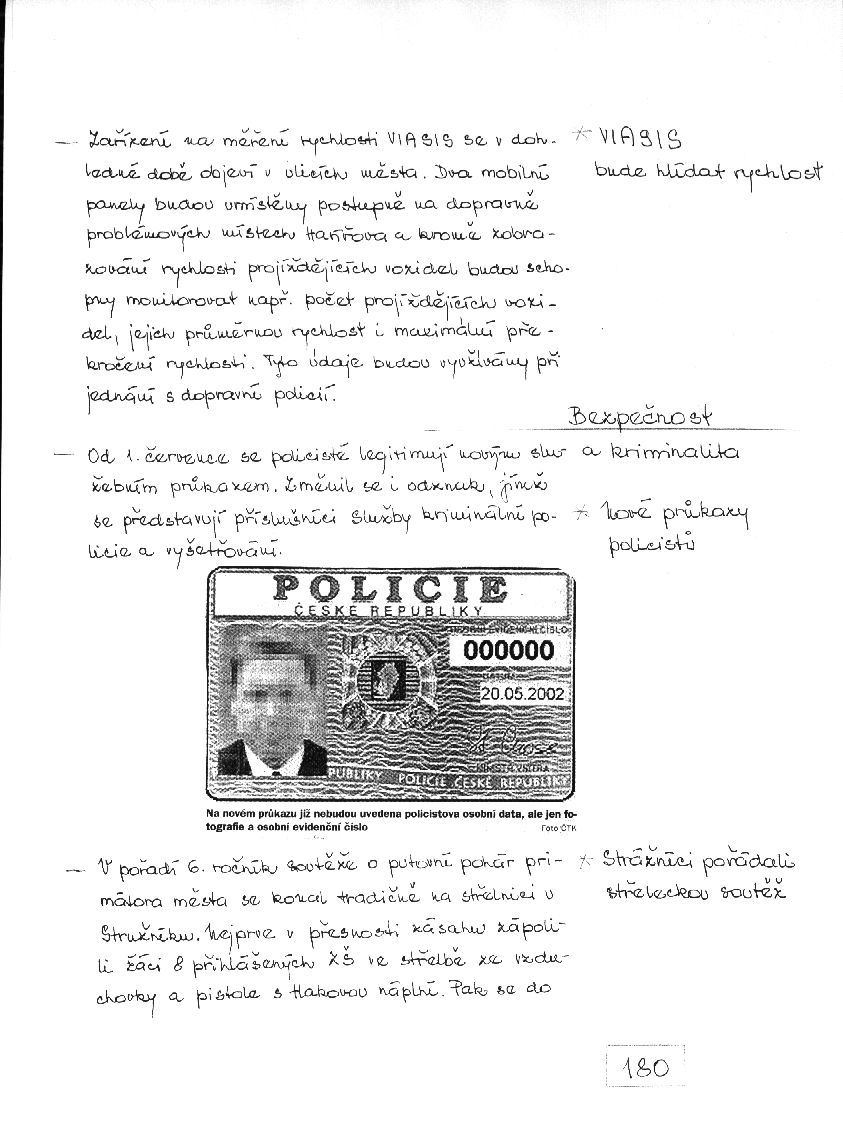 — Zařízení na měření rychlosti VIASIS se v doh-
ledné době objeví v ulicích města. Dva mobilní
panely budou umístěny postupně na dopravně
problémových místech Havířova a kromě zobra-
zování rychlosti projíždějících vozidel budou scho-
pny monitorovat např. počet projíždějících vozi-
del, jejich průměrnou rychlost i maximální pře-
kročení rychlosti. Tyto údaje budou využívány při
jednání s dopravní policií.
* VIASIS
bude hlídat rychlost
Bezpečnost
a kriminalita
— Od 1. července se policisté legitimují novým slu-
žebním průkazem. Změnil se i odznak, jímž
se představují příslušníci Služby kriminální po-
licie a vyšetřování.
* Nové průkazy
policistů
POLICIE
ČESKÉ REPUBLIKY
EVIDENČNÍ ČÍSLO
000000
DATUM
20.05.2002
MINISTR VNITRA
PUBLIKY POLICIE ČESKÉ REPUBLIKY
Na novém průkazu již nebudou uvedena policistova osobní data, ale jen fo-
tografie a osobní evidenční číslo
Foto ČTK
— V pořadí 6. ročník soutěže o putovní pohár pri-
mátora města se konal tradičně na střelnici v
Stružníku. Nejprve v přesnosti zásahu zápoli-
li žáci 8 přihlášených ZŠ ve střelbě ze vzdu-
chovky a pistole s tlakovou náplní. Pak se do
* Strážníci pořádali
střeleckou soutěž
180